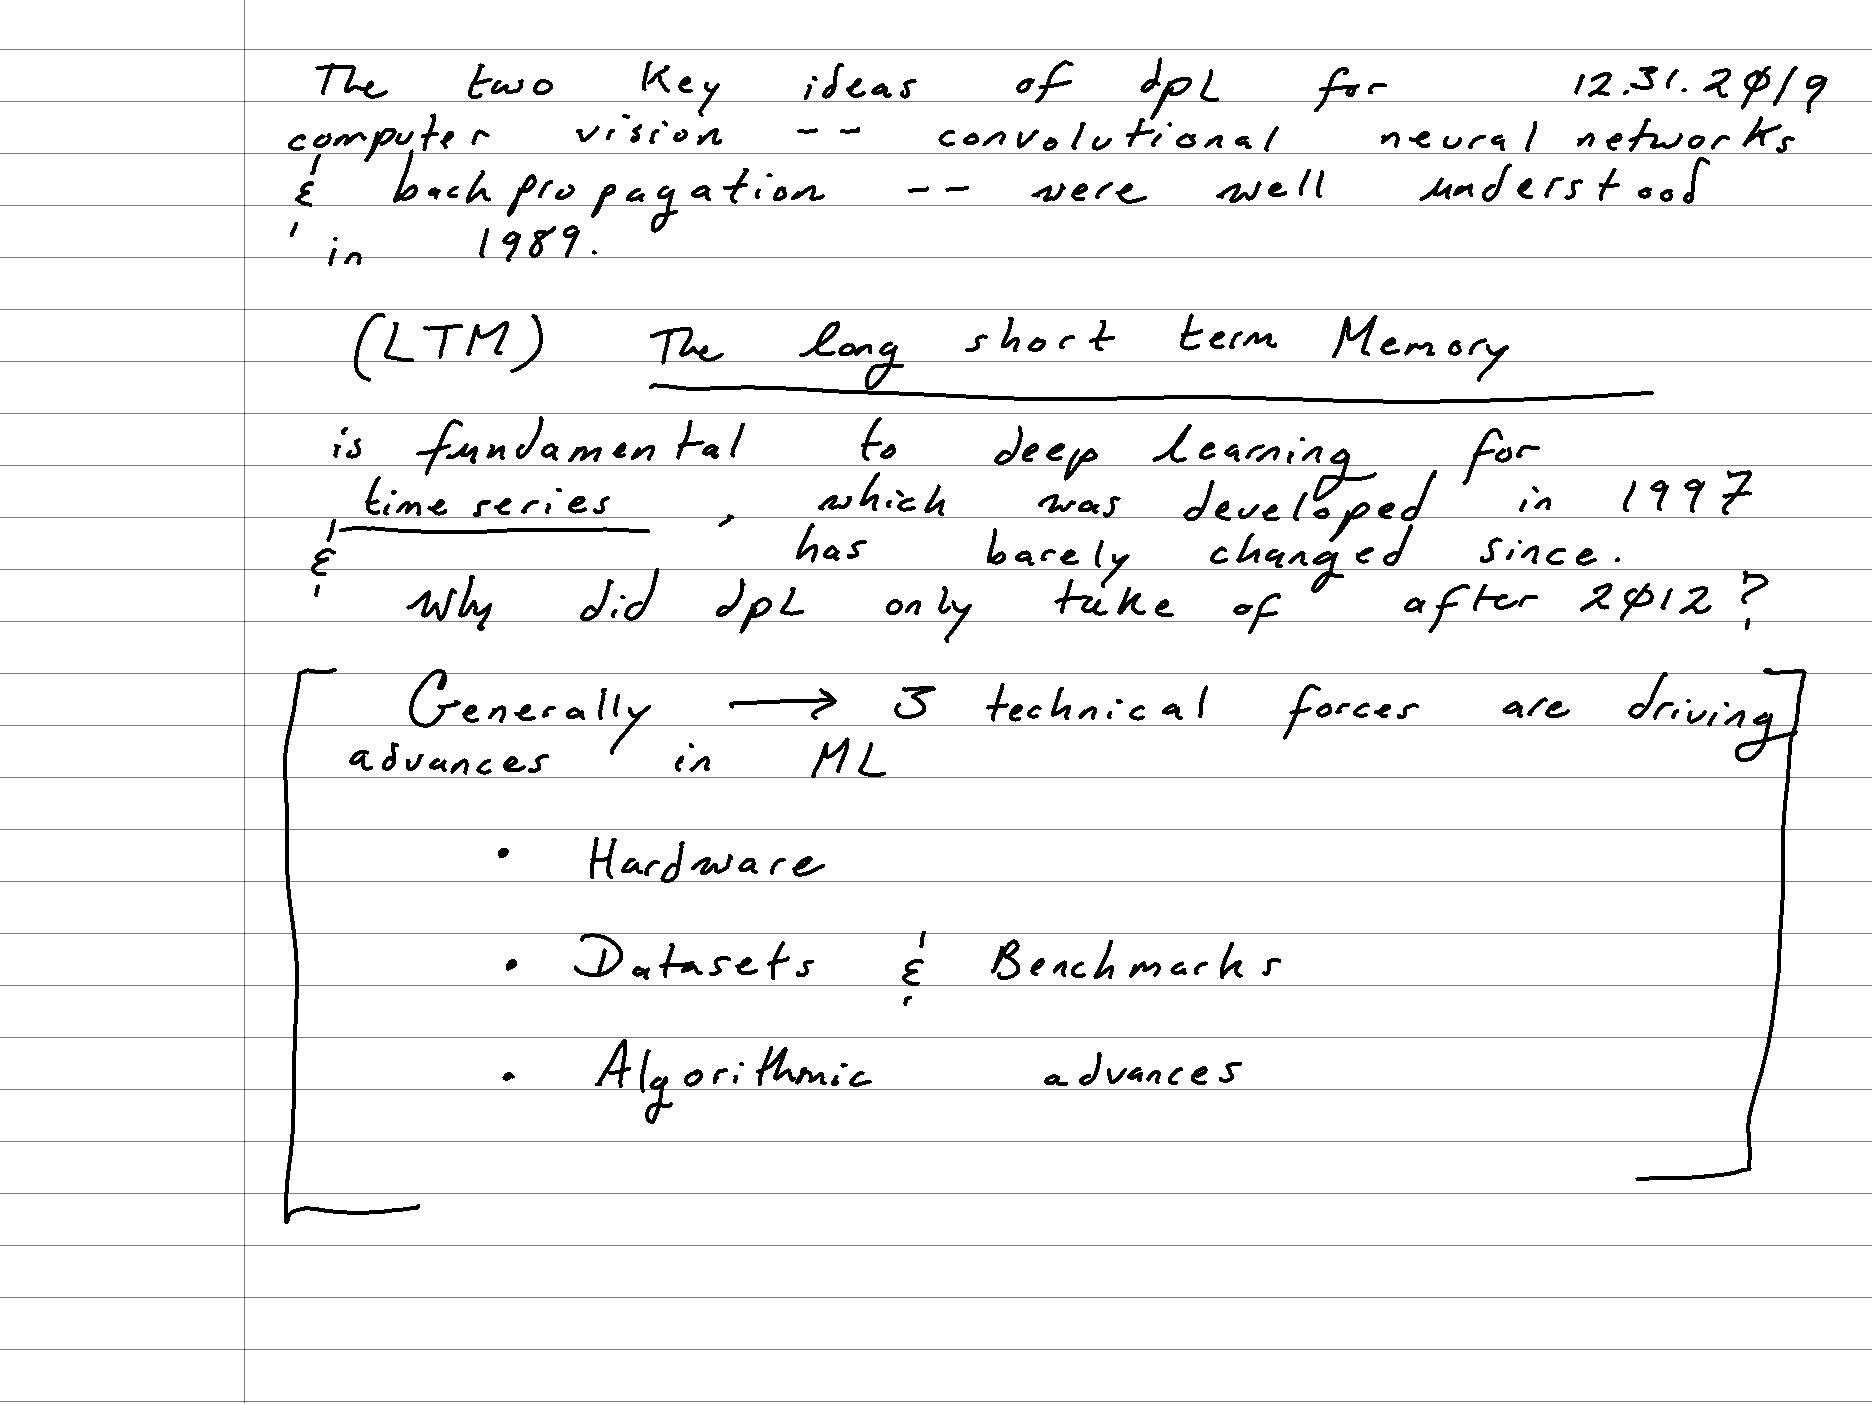 The two Key ideas of dpL for 12.31.2019
computer vision -- convolutional neural networks
& backpropagation -- were well understood
in 1989.
(LTM) The long short term Memory
is fundamental to deep learning for
time series, which was developed in 1997
& has barely changed since.
Why did dpL only take of after 2012?
Generally → 3 technical forces are driving
advances in ML
• Hardware
• Datasets & Benchmarks
• Algorithmic advances